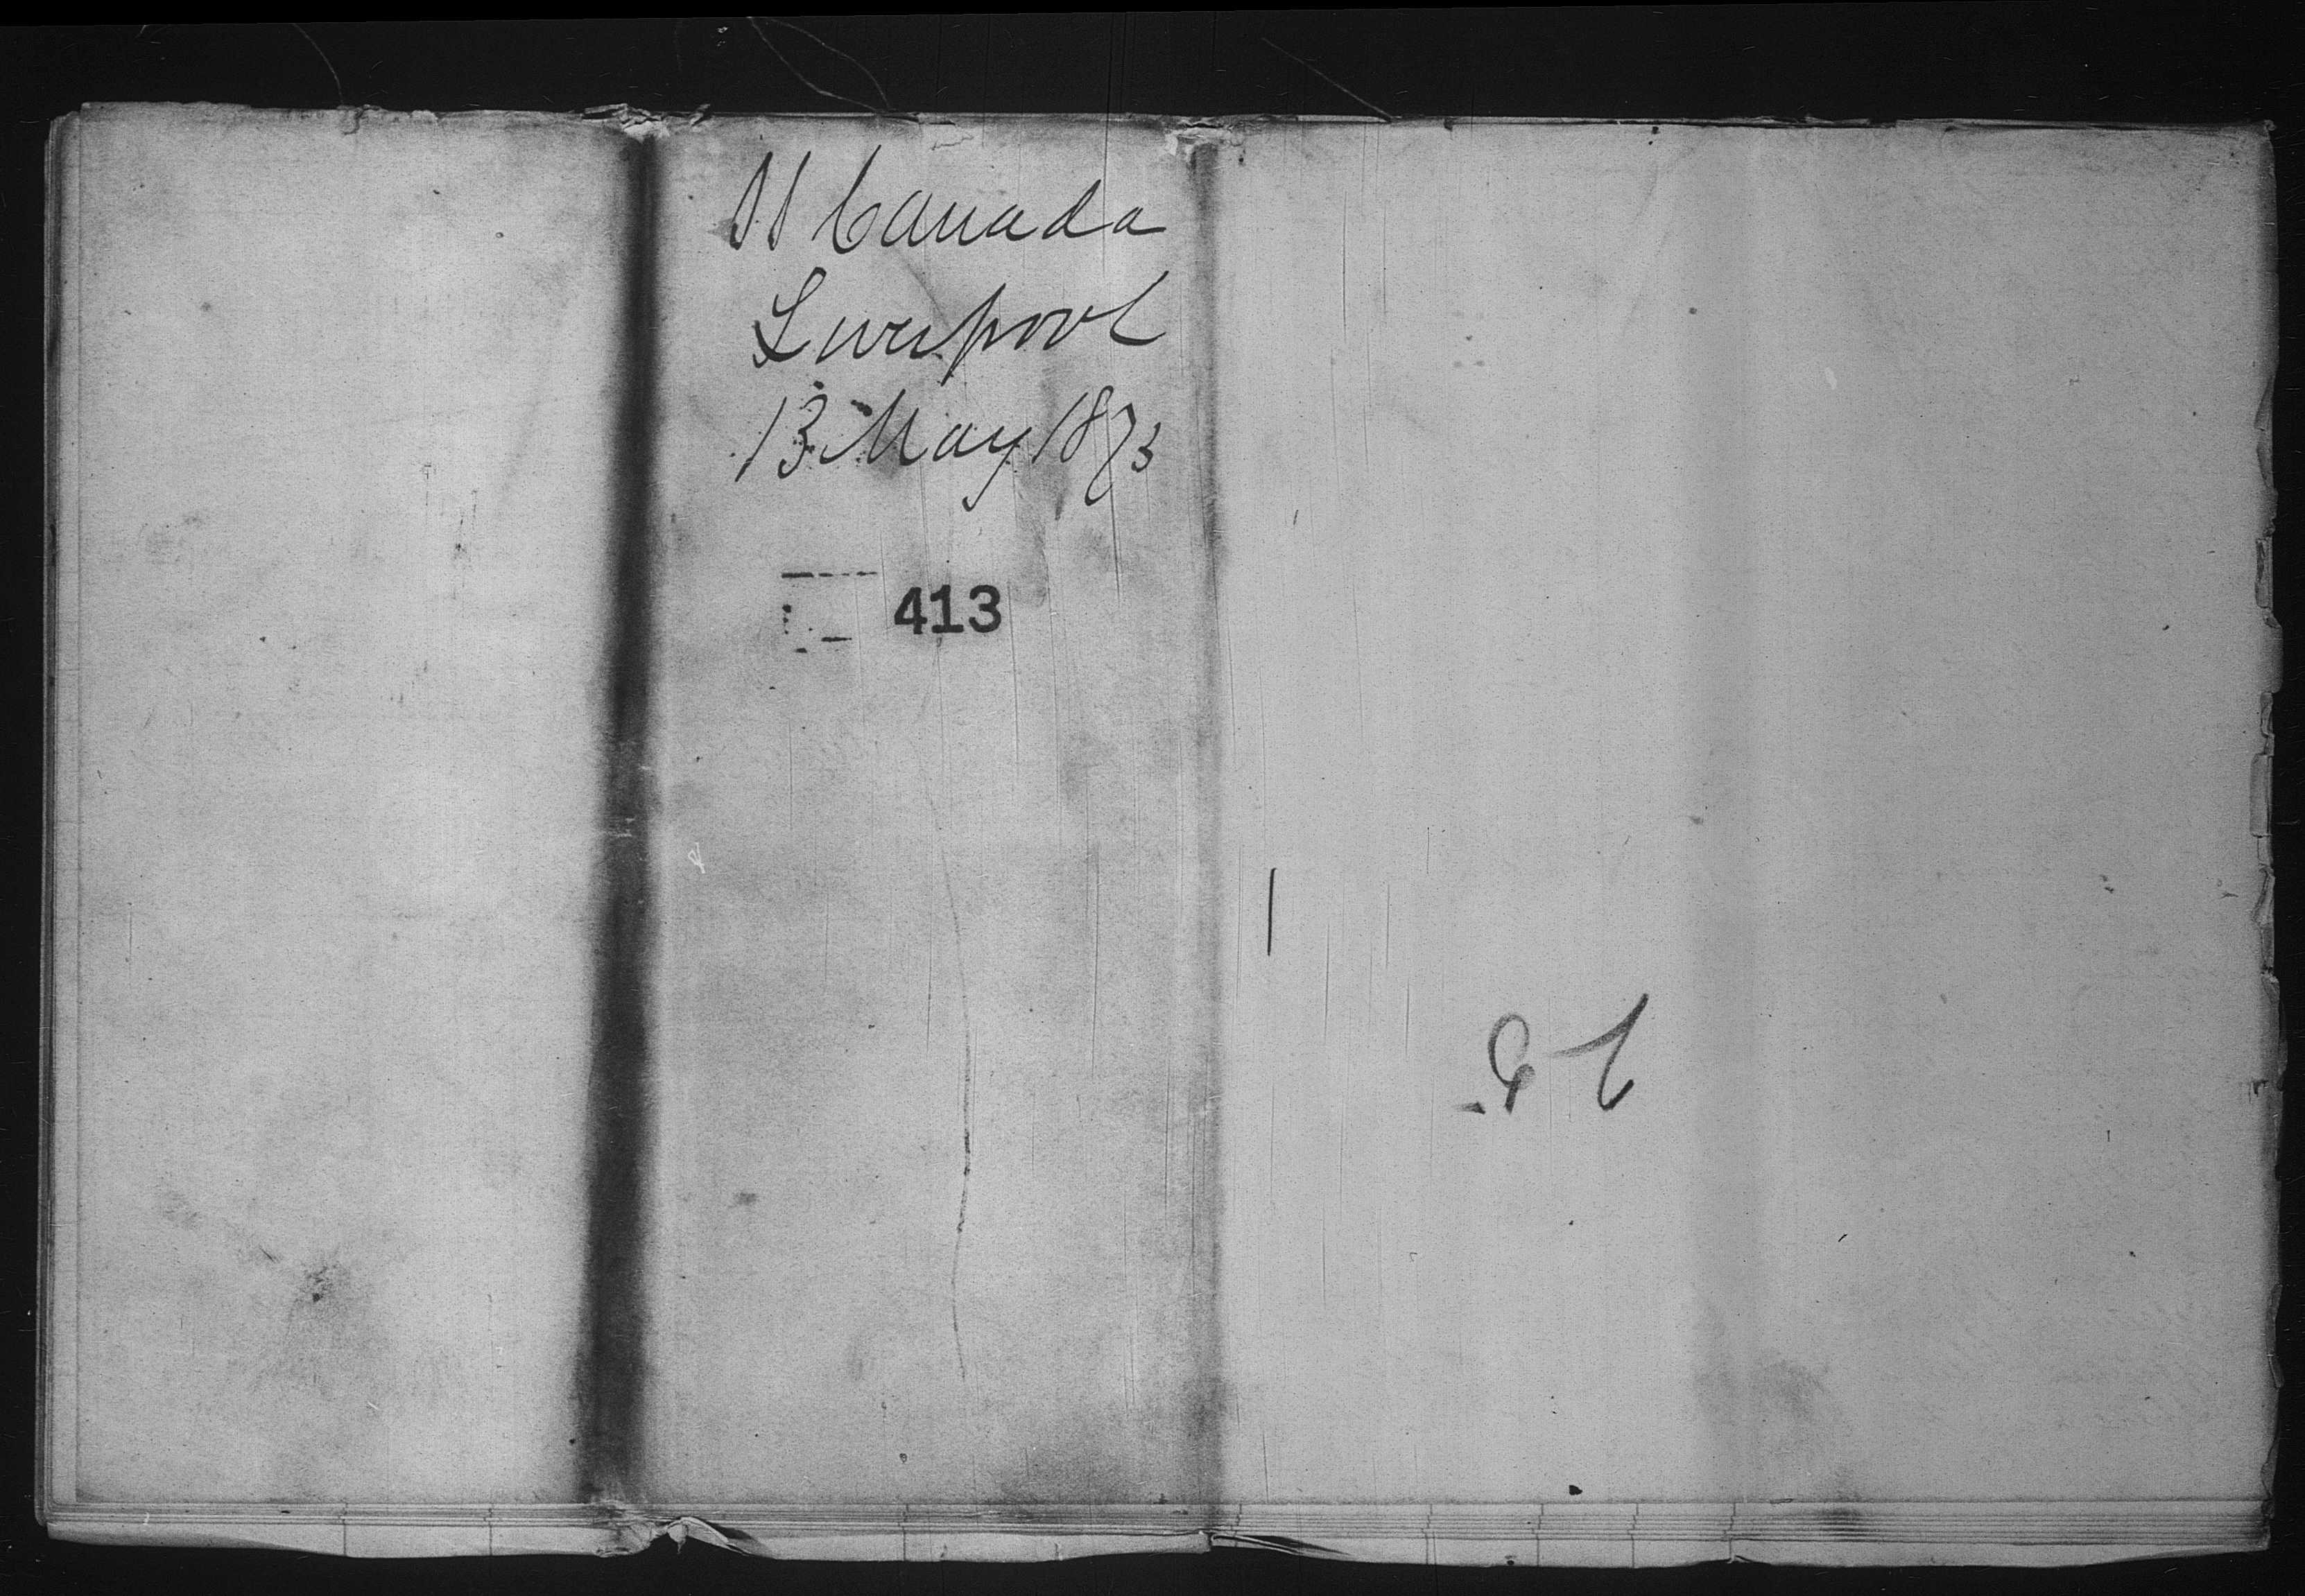 SS Canada
Liverpool
13 May 1873
413